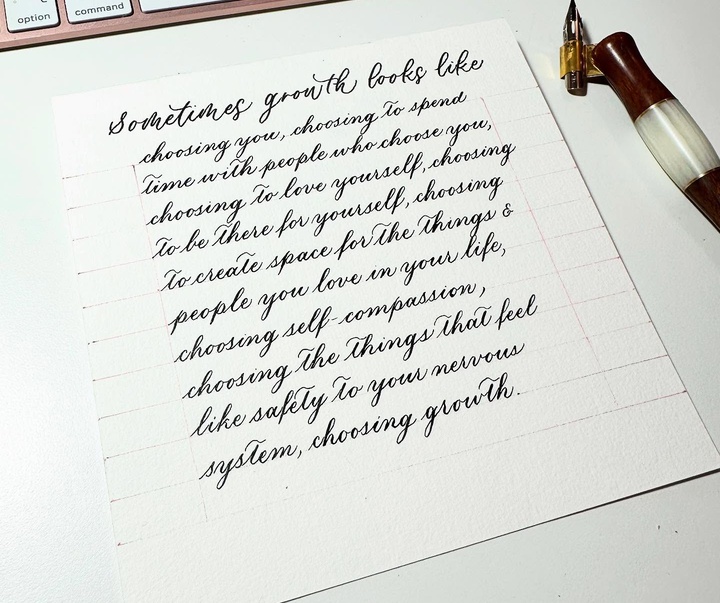 option
command
Sometimes growth looks like
choosing you, choosing to spend
time with people who choose you,
choosing to love yourself, choosing
to be there for yourself, choosing
to create space for the things &
people you love in your life,
choosing self-compassion,
choosing the things that feel
like safety to your nervous
system, choosing growth.